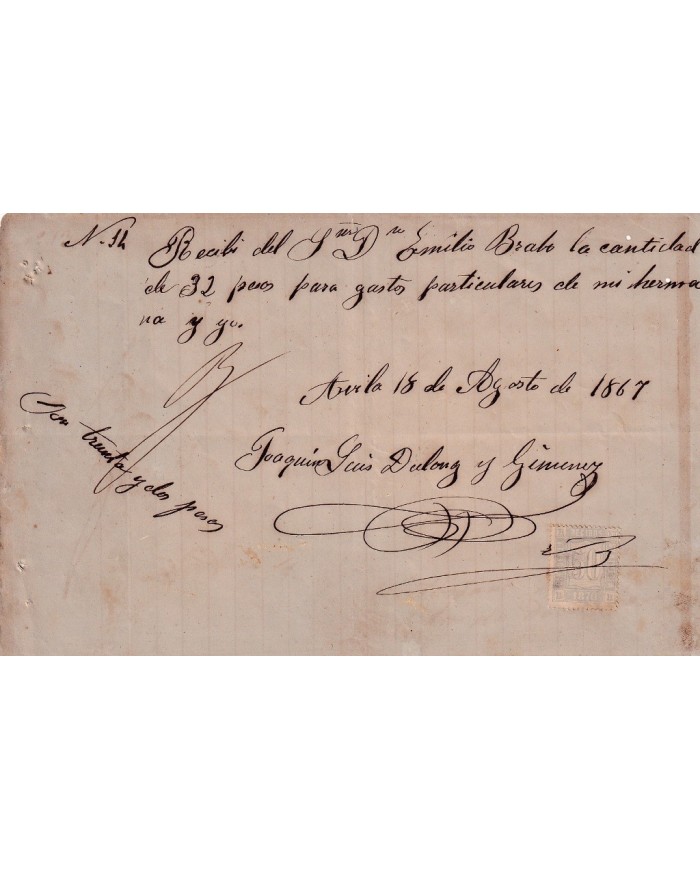 N. 14 Recibi del Sñr Dn Emilio Brabo la cantidad
de 32 pesos para gastos particulares de mi herma
na y yo.
Avila 18 de Agosto de 1867
Joaquin Luis Dulong y Gimenez
Son treinta y dos pesos
50